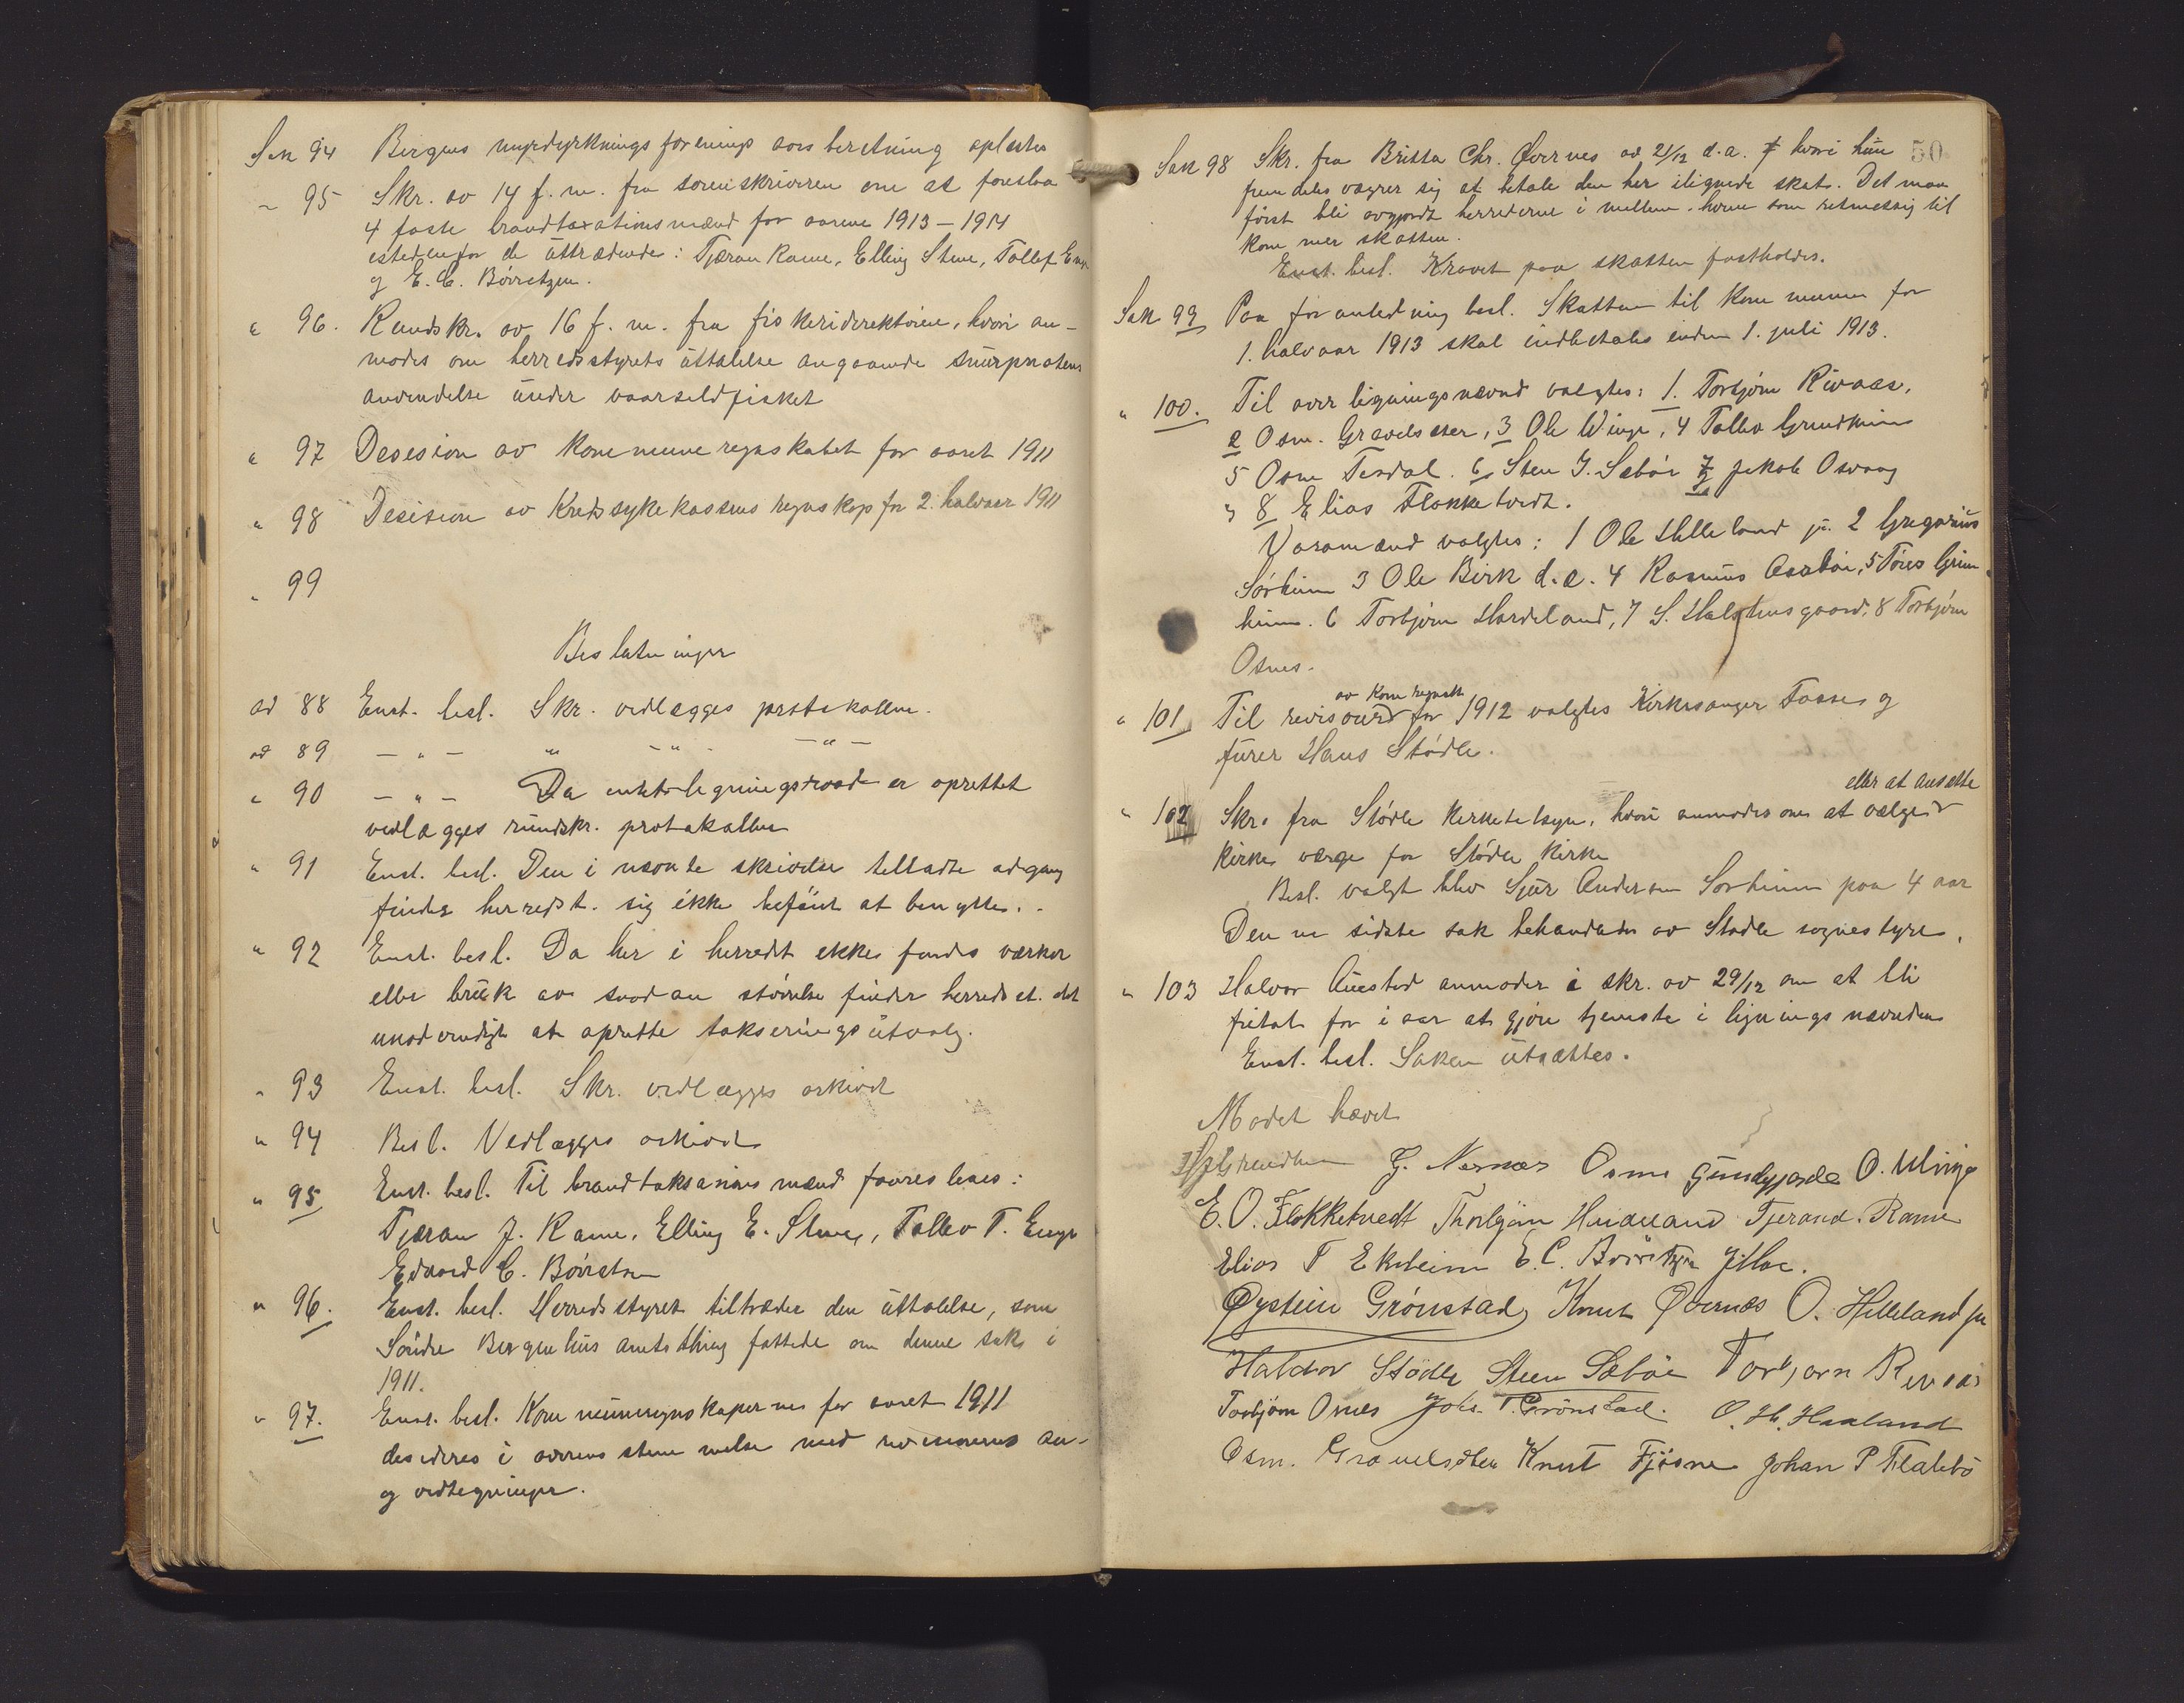 Sak 94 Bergens myrdyrknings forenings aars beretning oplæstes
" 95 Skr. av 14 f. m. fra sorenskriveren om at foreslaa
4 faste brandtaxationsmænd for aarene 1913 – 1914
istedenfor de uttrædende: Tjæran Rame, Elling Stene, Tollef Enge
og E. C. Børretzen.
" 96. Rundskr. av 16 f. m. fra fiskeridirektøren, hvori an-
modes om herredsstyrets uttalelse angaaende snurpnotens
anvendelse under vaarsildfisket
" 97 Desision av kommuneregnskabet for aaret 1911
" 98 Desision av Kredssykekassens regnskap for 2. halvaar 1911
" 99
Beslutninger
ad 88 Enst. besl. Skr. vedlægges protokollen.
ad 89 – " – " – " – – " –
" 90 – " – Da intet ligningsraad er oprettet
vedlægges rundskr. protokollen
" 91 Enst. besl. Den i nævnte skrivelse tilladte adgang
finder herredst. sig ikke beføiet at benytte.
" 92 Enst. besl. Da her i herredt ikke findes værker
eller bruk av saadan størrelse finder herredst. det
unødvendigt at oprette takseringsutvalg.
" 93 Enst. besl. Skr. vedlægges arkivet
" 94 Besl. Vedlægges arkivet
" 95 Enst. besl. Til brandtaksasions mænd fooresleaes:
Tjæran J. Rame, Elling E. Stene, Tollev T. Enge
Edvard C. Børretzen
" 96. Enst. besl. Herredsstyret tiltræder den uttalelse, som
Søndre Bergenhus amtsthing fattede om denne sak i
1911.
" 97. Enst. besl. Kommuneregnskapernes for aaret 1911
desideres i overensstemmelse med revisorernes an-
og vedtegninger.
50
Sak 98 Skr. fra Britta Chr. Øvernes av 21/12 d.a. hvori hun
fremdeles vægrer sig at betale den her ilignede skat. Det maa
først bli avgjordt herrederne i mellem, hvem som retmessig til
kommer skatten.
Enst. besl. Kravet paa skatten fastholdes.
Sak 99 Paa foranledning besl. Skatten til kommunen for
1. halvaar 1913 skal indbetales inden 1. juli 1913.
" 100. Til overligningsnævnd valgtes: 1. Torbjørn Rivaas,
2 Osm. Gravelsæter, 3 Ole Winge, 4 Tollev Grindheim
5 Osm Tesdal. 6 Sten J. Sæbøe 7 Jakob Osvaag
og 8 Elias Flokketvedt.
Varamænd valgtes: 1 Ole Helleland jr. 2 Gregorius
Sørheim 3 Ole Birk d.e. 4 Rasmus Aarbøe, 5 Tøres Grin
heim. 6 Torbjørn Hardeland, 7 S. Halsteinsgaard, 8 Torbjørn
Osnes.
av kom regnsk
" 101 Til revisorer for 1912 valgtes Kirkesanger Tosse og
furer Hans Stødle.
eller at ansette
" 102 Skr. fra Stødle kirketilsyn, hvori anmodes om at vælge
kirkeværge for Stødle kirke
Besl. valgt blev Sjur Andersen Sørheim paa 4 aar
Denne sidste sak behandledes av Stødle sognestyre.
" 103 Halvor Austad anmoder i skr. av 29/12 om at bli
fritat for i aar at gjøre tjeneste i ligningsnævnden
Enst. besl. Saken utsættes.
Mødet hævet
G. Nernæs Osmu Gundegjerde O. Winge
E. O. Flokketvedt Thorbjørn Hardeland Tjerand. Rame
Elias T Ekrheim E. C. Børretzen
Øystein Grønstad, Knut Øvernæs O. Helleland jr
Haldor Stødle Steen Sæbøe Torbjørn Rivaas
Torbjørn Osnes Johs. T. Grønstad. O. H. Haaland
Osm. Gravelsæter Knut Fjøsne Johan P Flatebø